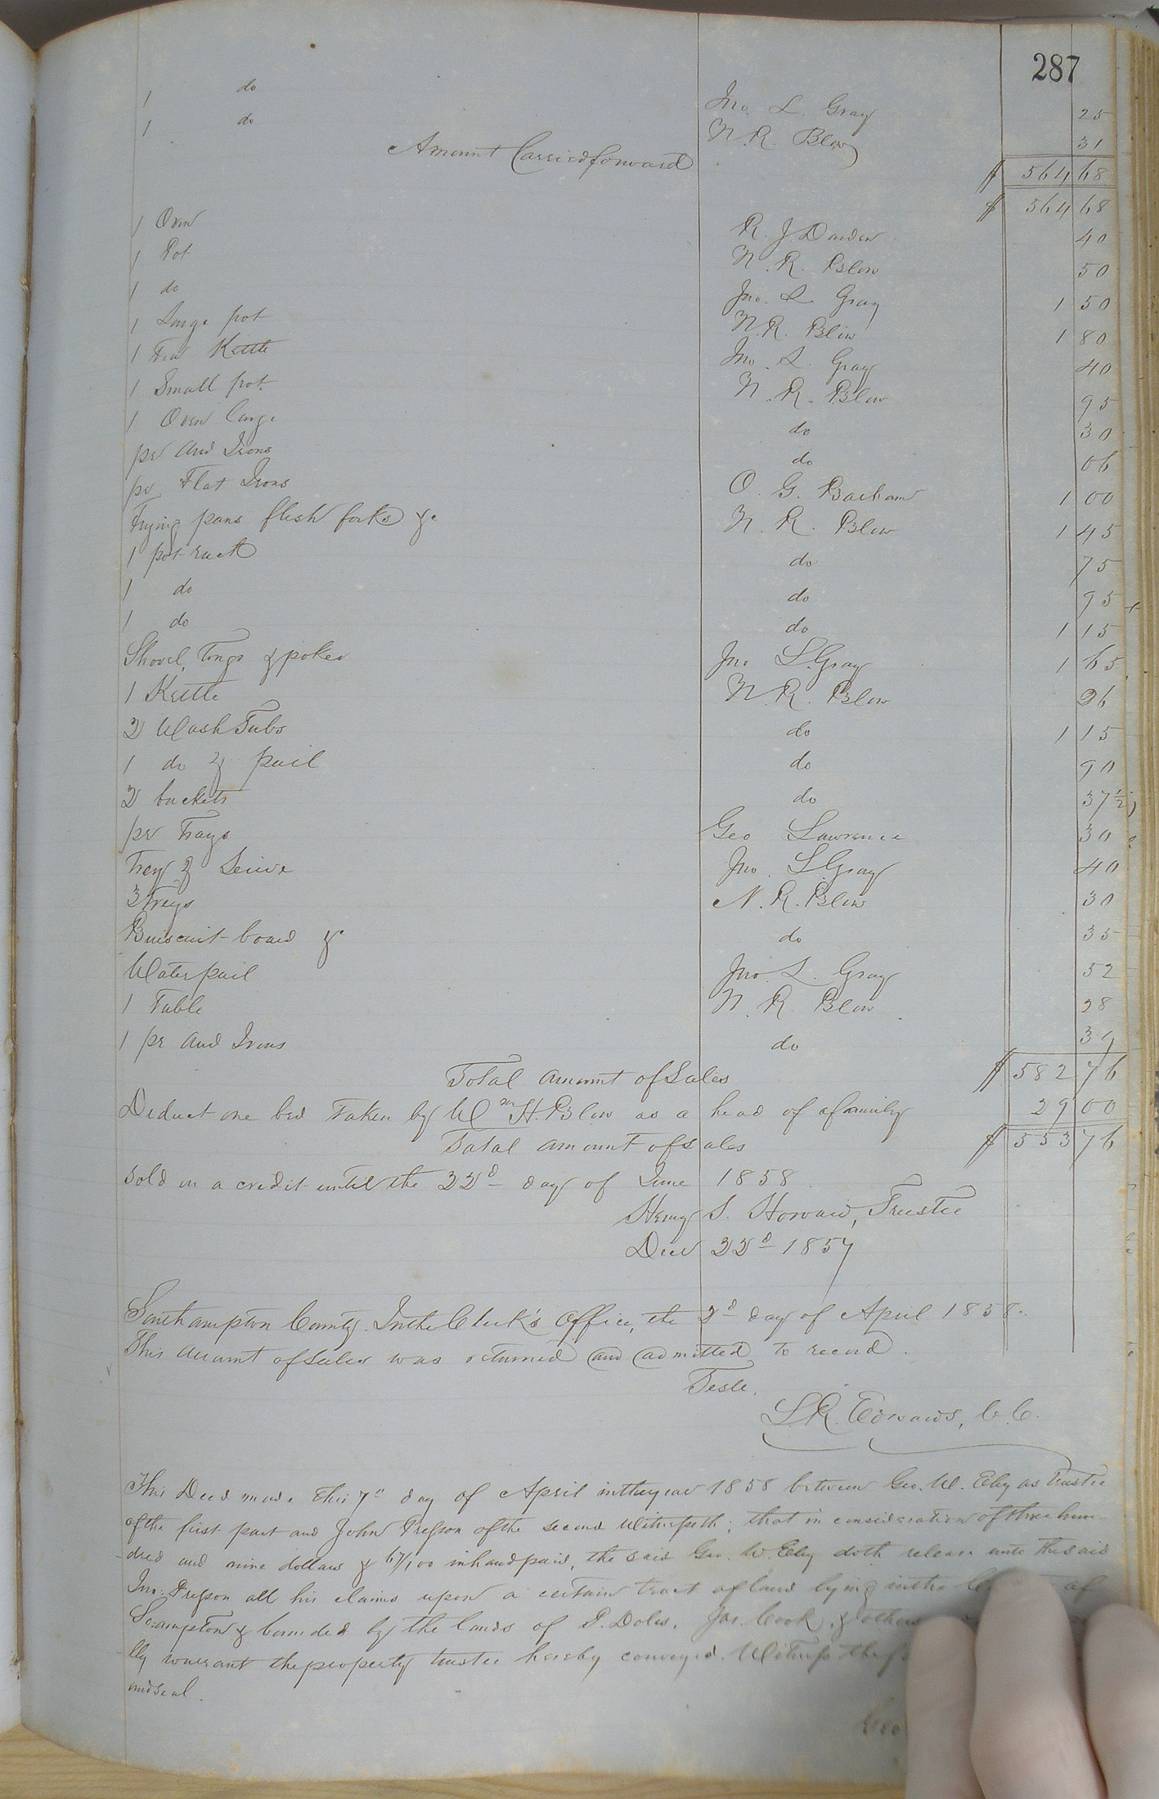 287
1 do Jno. L. Gray 25
1 do N. R. Blow 31
Amount Carried forward $ 564 68
$ 564 68
1 Oven R. J Darden 40
1 Pot N. R. Blow 50
1 do Jno. L. Gray 1 50
1 Large pot N. R. Blow 1 80
1 Tea Kettle Jno. L. Gray 40
1 Small pot N. R. Blow 95
1 Oven large do 30
pr And Irons do 06
pr Flat Irons O. G. Barham 1 00
Frying pans flesh forks &c N. R. Blow 1 45
1 pot rack do 75
1 do do 95
1 do do 1 15
Shovel, Tongs & poker Jno L. Gray 1 65
1 Kettle N. R. Blow 26
2 Wash Tubs do 1 15
1 do & pail do 90
2 buckets do 37½
pr Trays Geo Lawrence 30
Trey & Seive Jno. L. Gray 40
3 Treys N. R. Blow 30
Buiscuit board &c do 35
Water pail Jno. L. Gray 52
1 Table N. R. Blow 28
1 pr And Irons do
Total amount of Sales $ 582 76
Deduct one bed Taken by Wm H. Blow as a head of a family 29 00
Total amount of sales $ 553 76
Sold on a credit until the 22d day of June 1858
Henry S. Howard, Trustee
Decr 22d 1857
Southampton County. In the Clerk's Office, the 2d day of April 1858.
This account of Sales was returned and admitted to record.
Teste,
L. R. Edwards, C. C.
This Deed made this 7th day of April in the year 1858 between Geo. W. Eley as Trustee
of the first part and John Presson of the second Witnesseth; that in consideration of three hun-
-dred and nine dollars & 67/100 in hand paid, the said Geo. W. Eley doth release unto the said
Jno. Presson all his claims upon a certain tract of land lying in the of
& bounded by the lands of P. Doles, Jas. Cook, & others
lly warrant the property trustee hereby conveyed. Witness the
and seal.
Geo